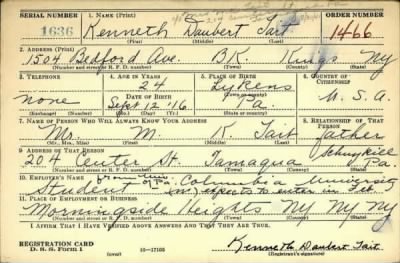 SERIAL NUMBER 1. NAME (Print) ORDER NUMBER
1636 Kenneth Daubert Tait 1466
(First) (Middle) (Last)
2. ADDRESS (Print)
1504 Bedford Ave. BK Kings NY
(Number and street or R. F. D. number) (Town) (County) (State)
3. TELEPHONE 4. AGE IN YEARS 5. PLACE OF BIRTH 6. COUNTRY OF CITIZENSHIP
24 Lykens
none DATE OF BIRTH (Town or county)
Sept 12 '16 Pa. U.S.A.
(Exchange) (Number) (Mo.) (Day) (Yr.) (State or country)
7. NAME OF PERSON WHO WILL ALWAYS KNOW YOUR ADDRESS 8. RELATIONSHIP OF THAT PERSON
Mr. M. K. Tait father
(Mr., Mrs., Miss) (First) (Middle) (Last)
9. ADDRESS OF THAT PERSON Schuylkill
204 Center St. Tamaqua Pa.
(Number and street or R. F. D. number) (Town) (County) (State)
10. EMPLOYER'S NAME of Pa. Columbia University
Student expects to enter in
11. PLACE OF EMPLOYMENT OR BUSINESS
Morningside Heights NY NY NY
(Number and street or R. F. D. number) (Town) (County) (State)
I AFFIRM THAT I HAVE VERIFIED ABOVE ANSWERS AND THAT THEY ARE TRUE.
REGISTRATION CARD
D. S. S. Form 1 (over) 16—17105 Kenneth Daubert Tait
(Registrant's signature)